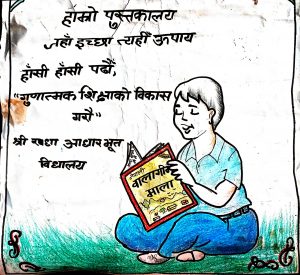 हाम्रो पुस्तकालय
जहाँ इच्छा त्यहीँ ऊपाय
हाँसी हाँसी पढौँ,
"गुणात्मक शिक्षाको विकास
गरौँ"
श्री रुधा आधारभूत
विद्यालय
वालागीत
माला